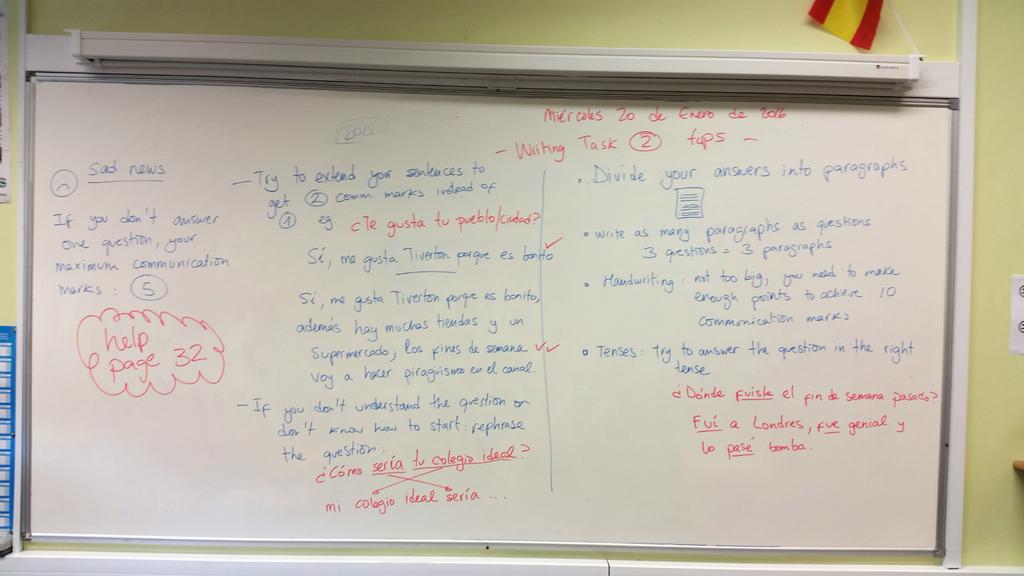 Miércoles 20 de Enero de 2016
- Writing Task 2 tips -
2015
Sad news
If you don't answer
one question, your
maximum communication
marks : 5
help
page 32
- Try to extend your sentences to
get 2 comm. marks instead of
1 eg. ¿Te gusta tu pueblo/ciudad?
Sí, me gusta Tiverton porque es bonito
Sí, me gusta Tiverton porque es bonito,
además hay muchas tiendas y un
supermercado, los fines de semana
voy a hacer piragüismo en el canal.
- If you don't understand the question or
don't know how to start: rephrase
the question:
¿Cómo sería tu colegio ideal?
mi colegio ideal sería ...
• Divide your answers into paragraphs
• write as many paragraphs as questions
3 questions = 3 paragraphs
• Handwriting : not too big, you need to make
enough points to achieve 10
communication marks
• Tenses: try to answer the question in the right
tense
¿Dónde fuiste el fin de semana pasado?
Fuí a Londres, fue genial y
lo pasé bomba.